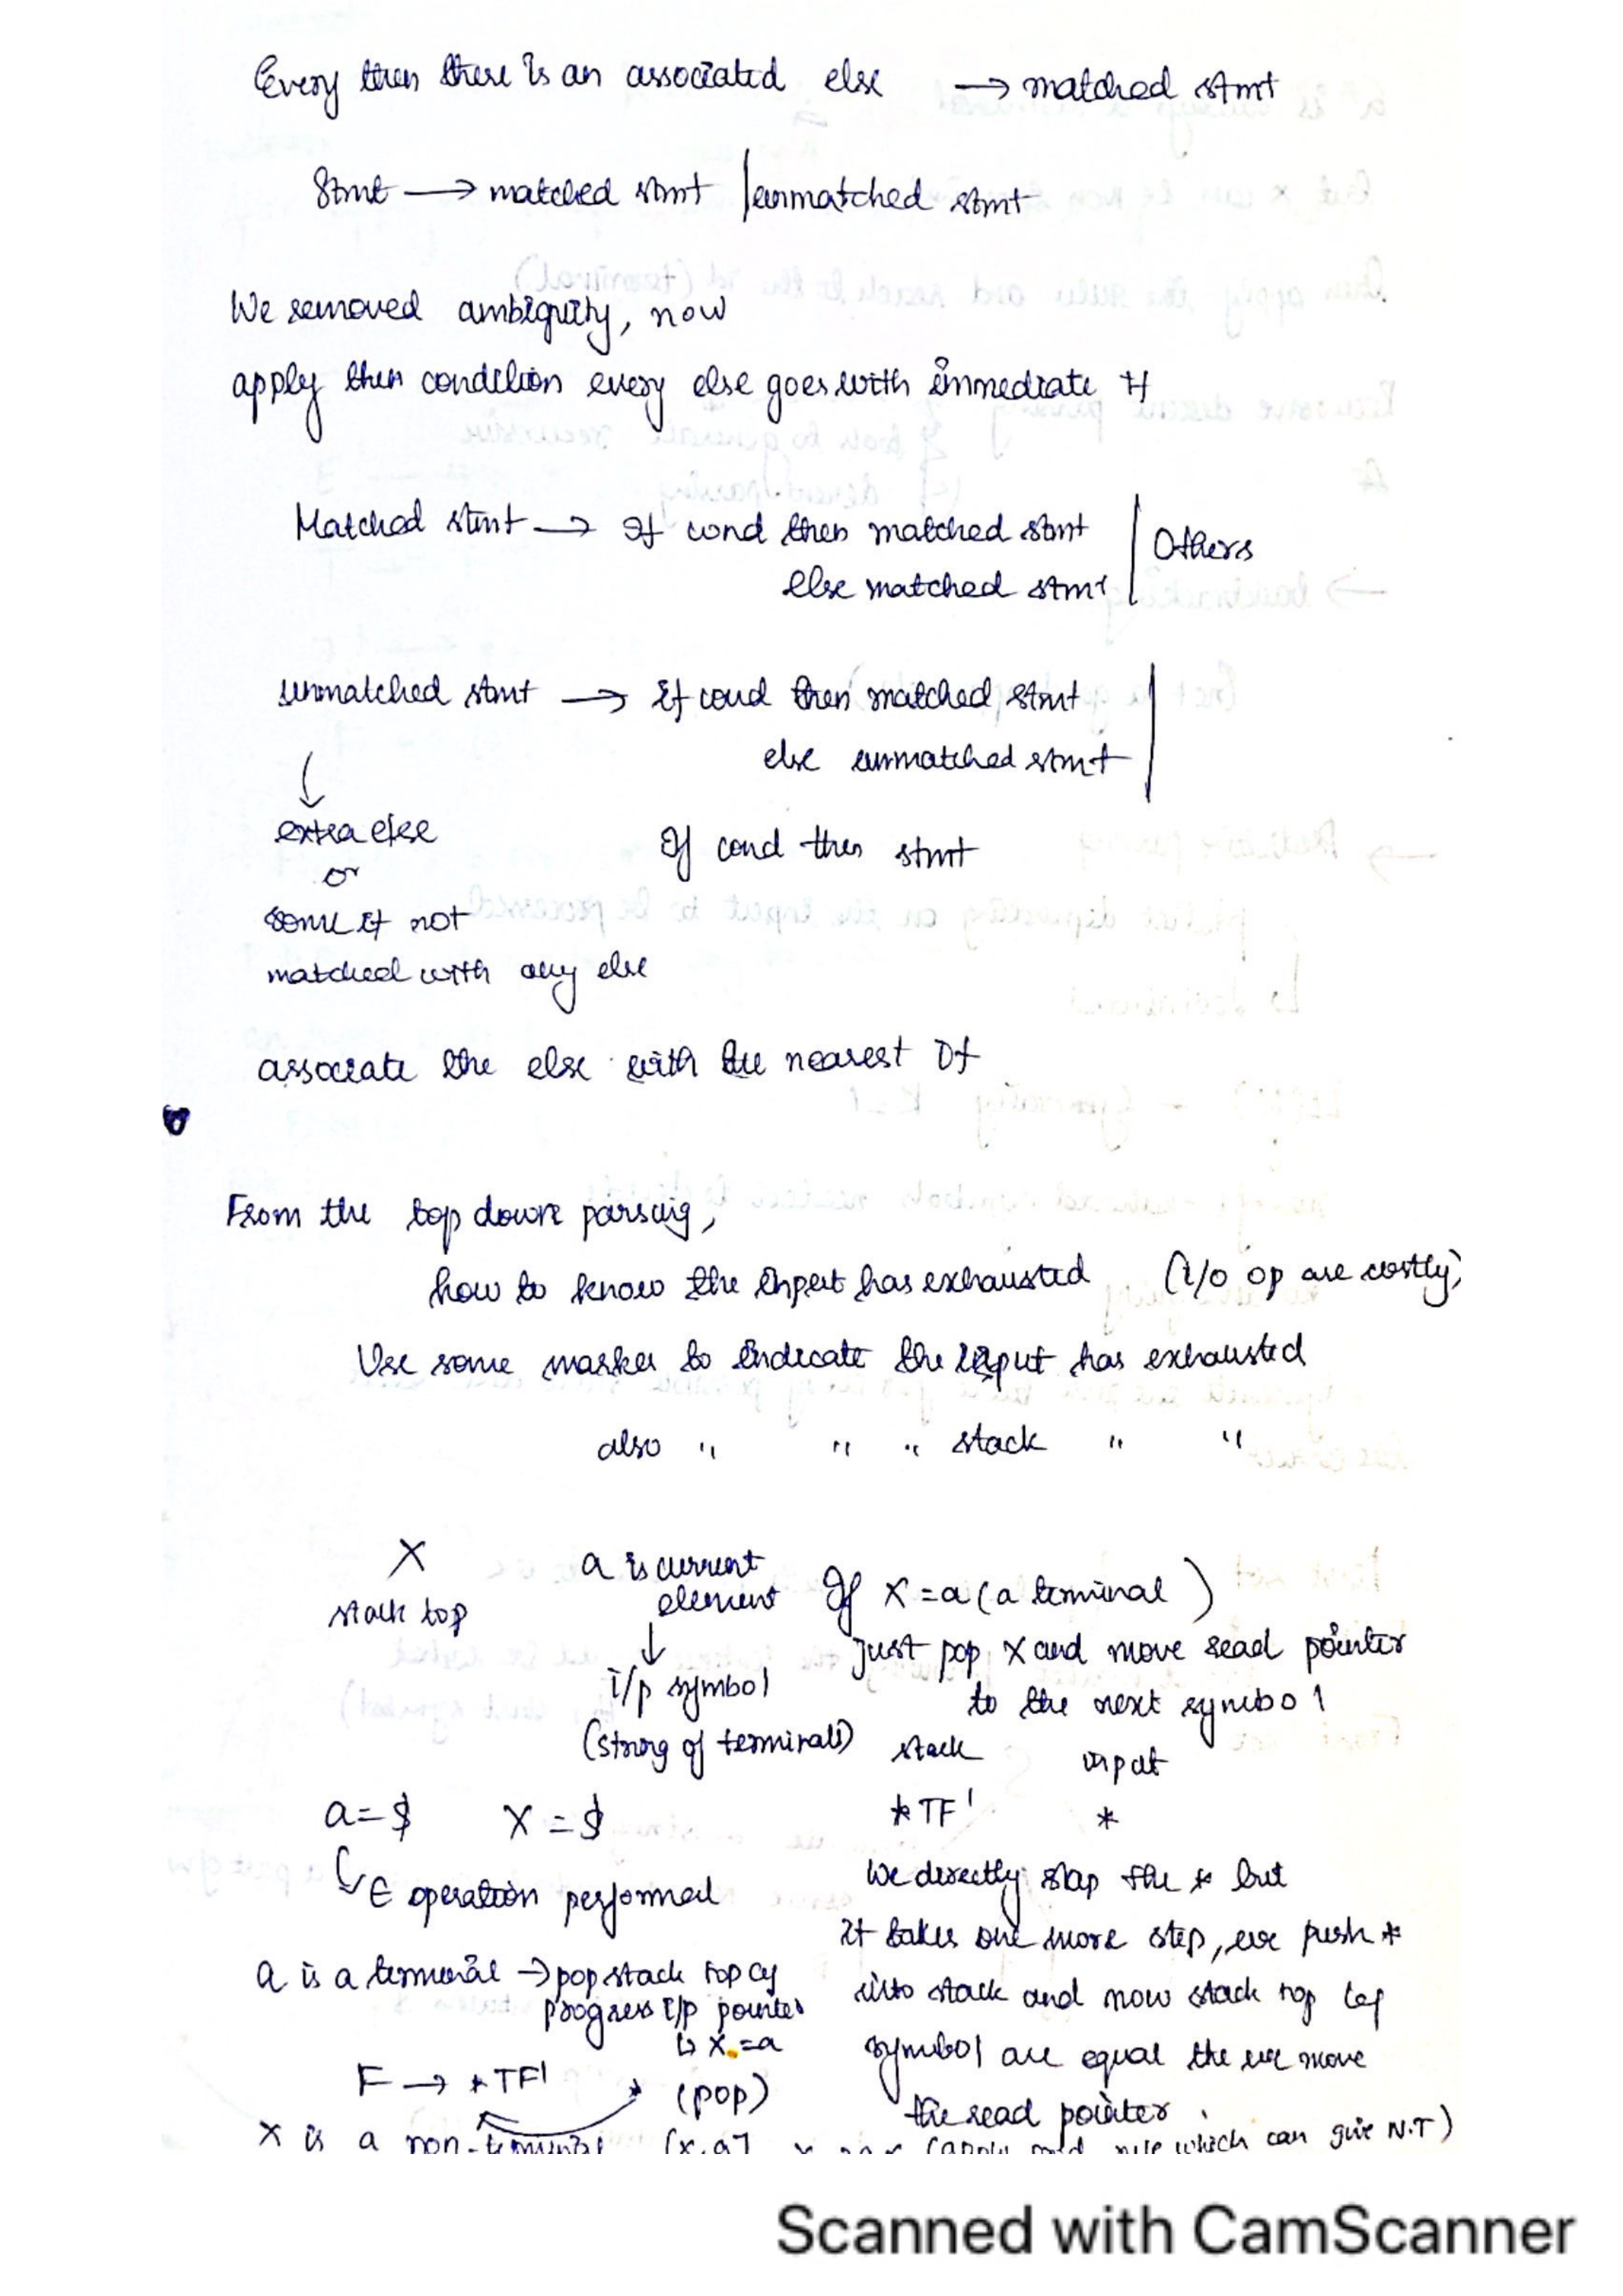 Every then there is an associated else → matched stmt
Stmt → matched stmt | unmatched stmt
We removed ambiguity, now
apply then condition every else goes with immediate if
Matched stmt → If cond then matched stmt | Others
else matched stmt
unmatched stmt → if cond then matched stmt |
else unmatched stmt
If cond then stmt
extra else
or
some if not
matched with any else
associate the else with the nearest If
From the top down parsing,
how to know the input has exhausted (i/o op are costly)
Use some marker to indicate the input has exhausted
also " " " stack " "
X
stack top
a is current
element
↓
i/p symbol
(string of terminals)
If X = a (a terminal)
just pop X and move read pointer
to the next symbol
stack input
*TF' *
a = $ X = $
↳ ∈ operation performed
We directly the * but
it takes one more step, we push *
into stack and now stack top
symbol are equal the we move
the read pointer
a is a terminal → pop stack top
progress i/p pointer
↳ X = a
(pop)
F → *TF'
X is a non-terminal (x,a] rule which can give N.T)
Scanned with CamScanner